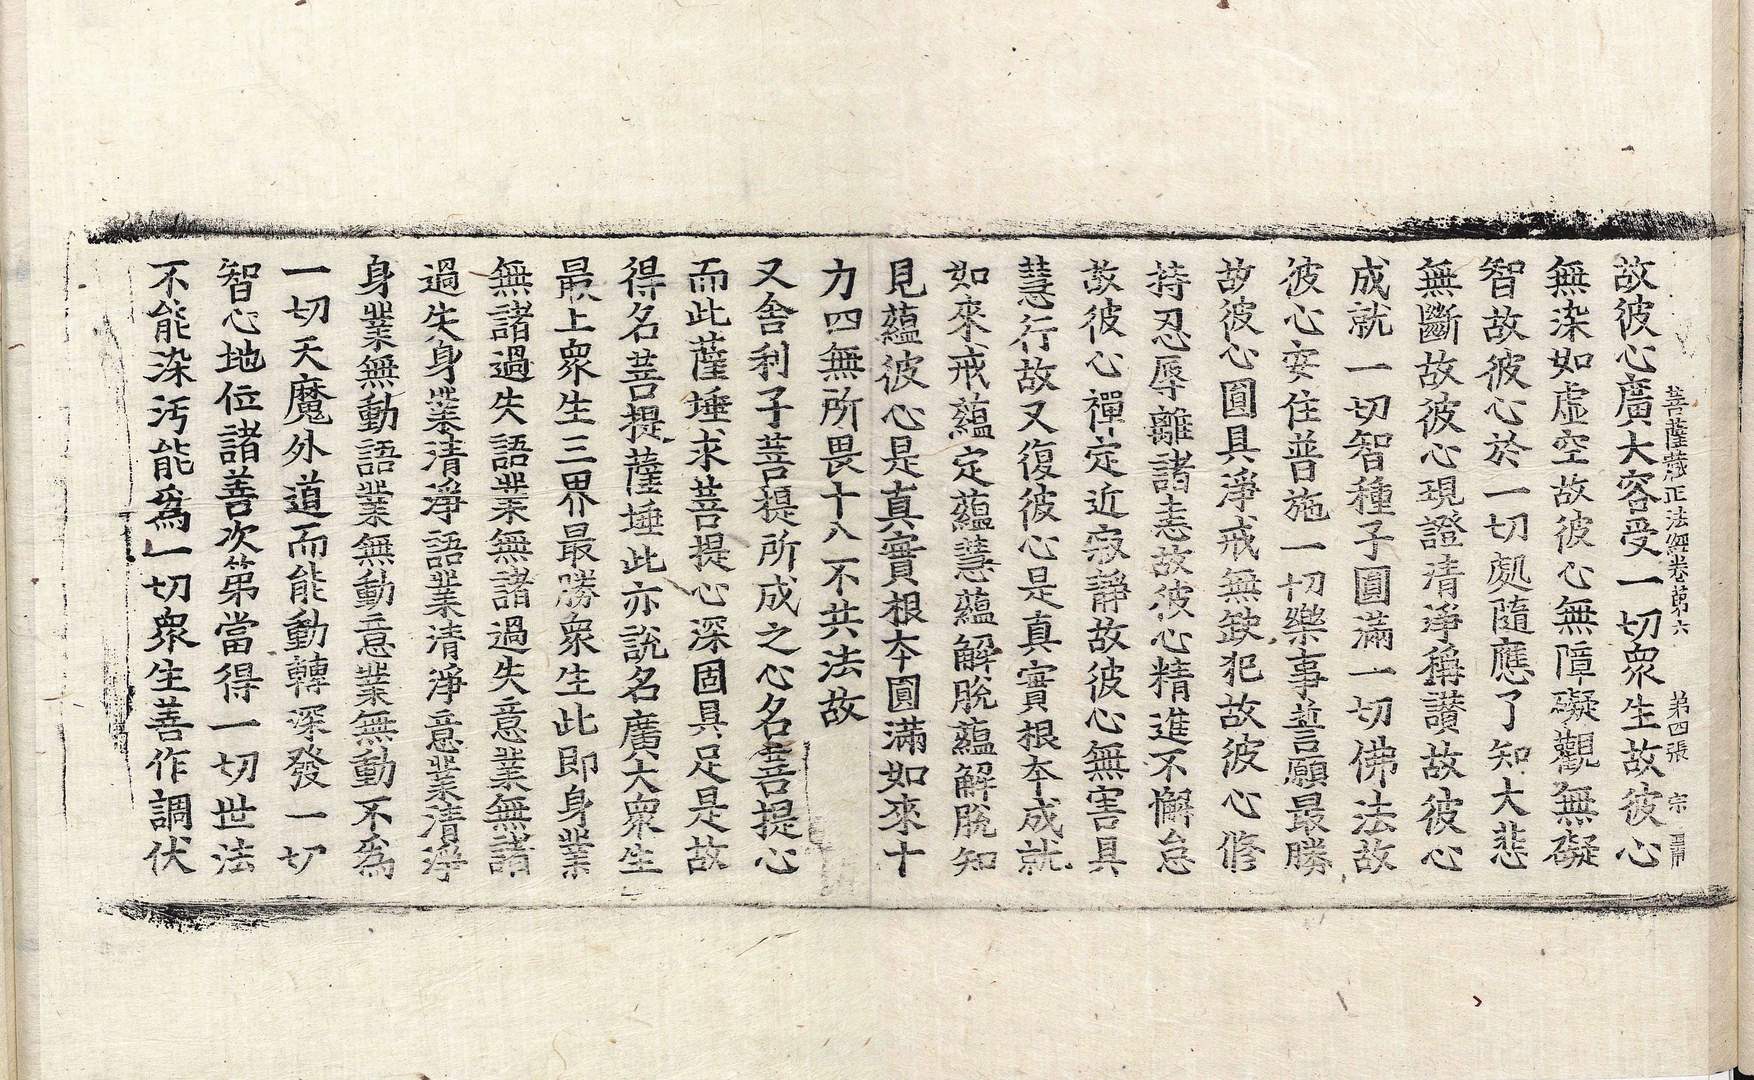 菩薩藏正法經卷第六 第四張 宗
故彼心廣大容受一切衆生故彼心
無染如虛空故彼心無障礙觀無礙
智故彼心於一切處隨應了知大悲
無斷故彼心現證清淨稱讃故彼心
成就一切智種子圓滿一切佛法故
彼心安住普施一切樂事善言願最勝
故彼心圓具淨戒無缺犯故彼心修
持忍辱離諸恚故彼心精進不懈怠
故彼心禪定近寂靜故彼心無害具
慧行故又復彼心是真實根本成就
如來戒蘊定蘊慧蘊解脫蘊解脫知
見蘊彼心是真實根本圓滿如來十
力四無所畏十八不共法故
又舍利子菩提所成之心名菩提心
而此薩埵求菩提心深固具足是故
得名菩提薩埵此亦說名廣大衆生
最上衆生三界最勝衆生此即身業
無諸過失語業無諸過失意業無諸
過失身業清淨語業清淨意業清淨
身業無動語業無動意業無動不為
一切天魔外道而能動轉深發一切
智心地位諸善次第當得一切世法
不能染汚能為一切衆生善作調伏